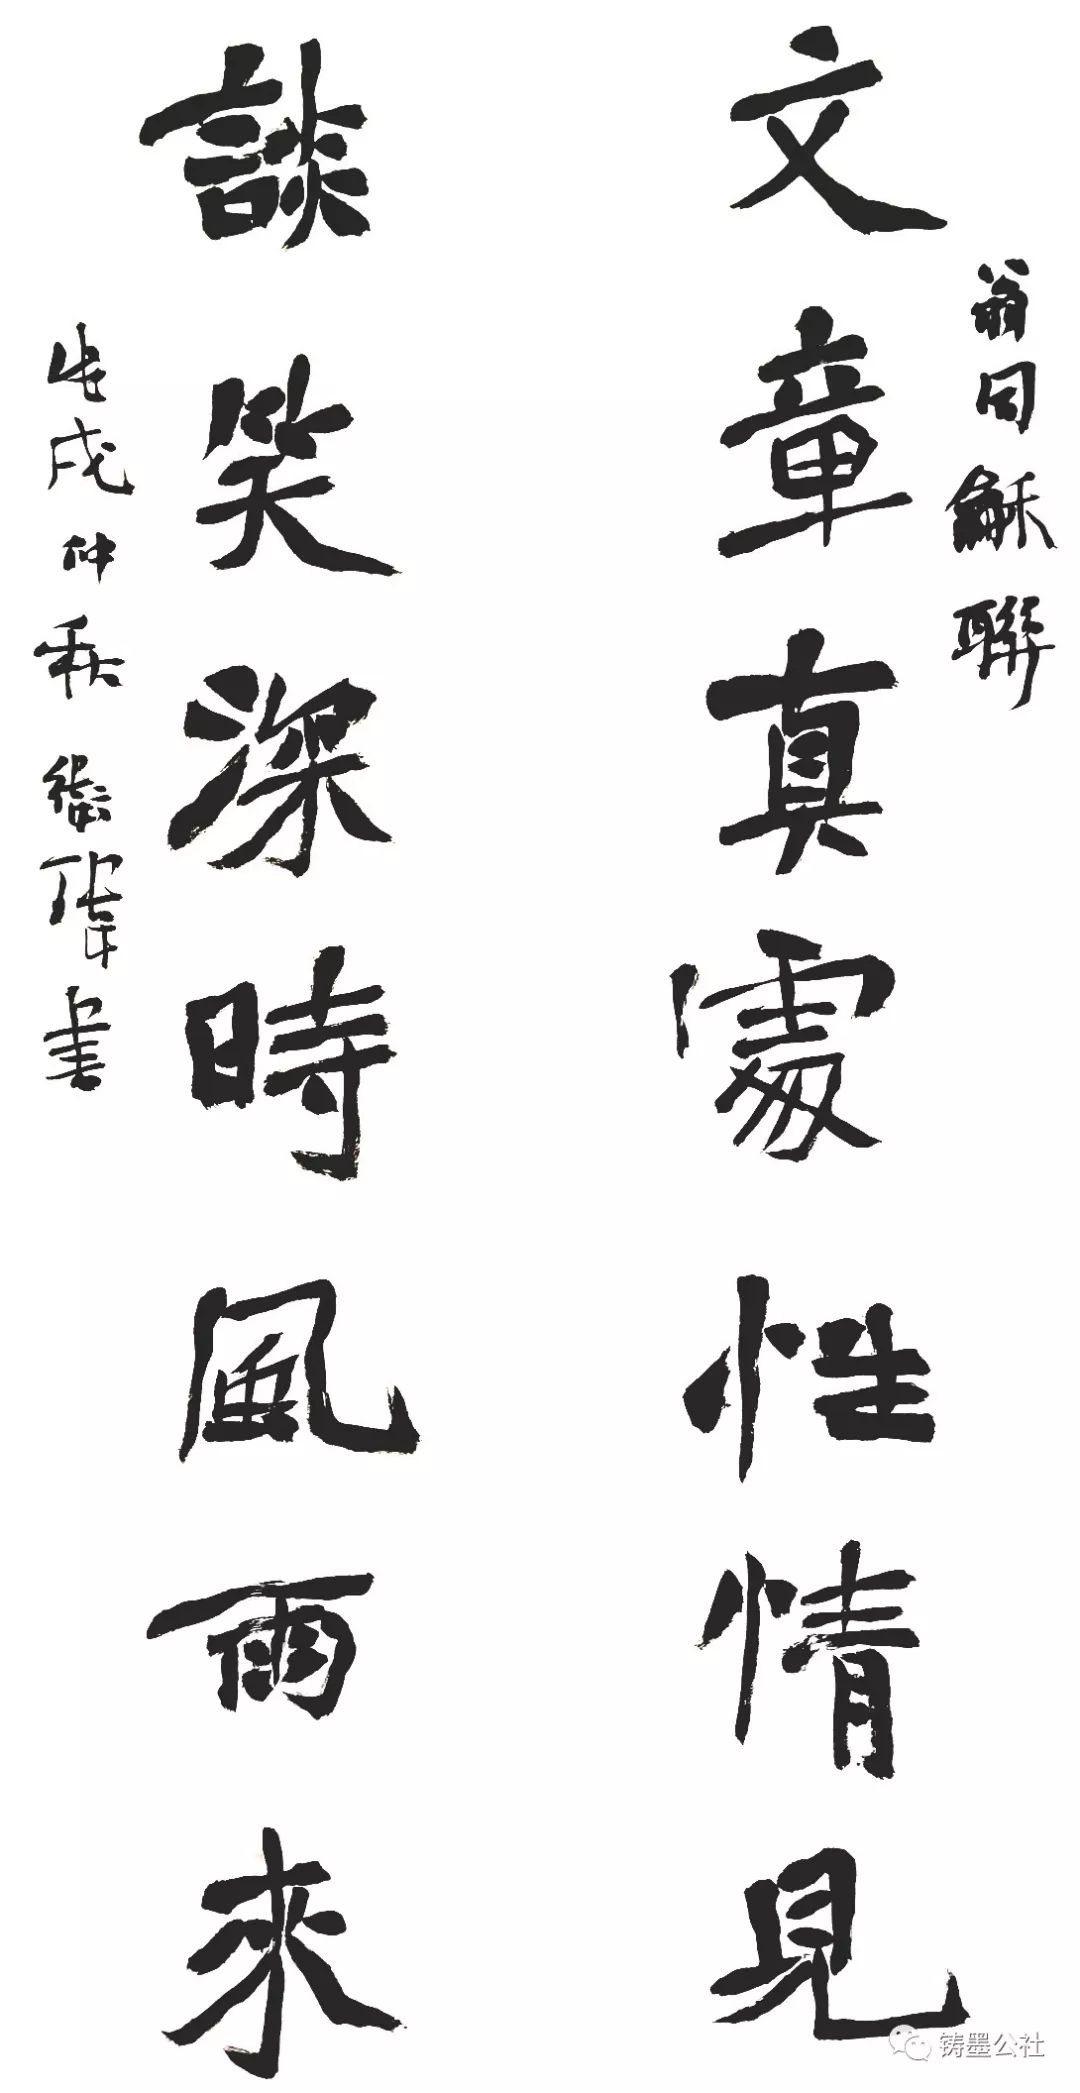 文章真處性情見
翁同龢聯
談笑深時風雨來
戊戌仲秋衛軍書
铸墨公社